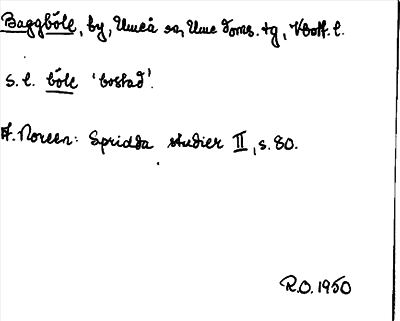 Baggböle, by, Umeå sn, Ume doms. tg, Vbott. l.
s. l. böle 'bostad'.
A. Noreen: Spridda studier II, s. 80.
R.O. 1950